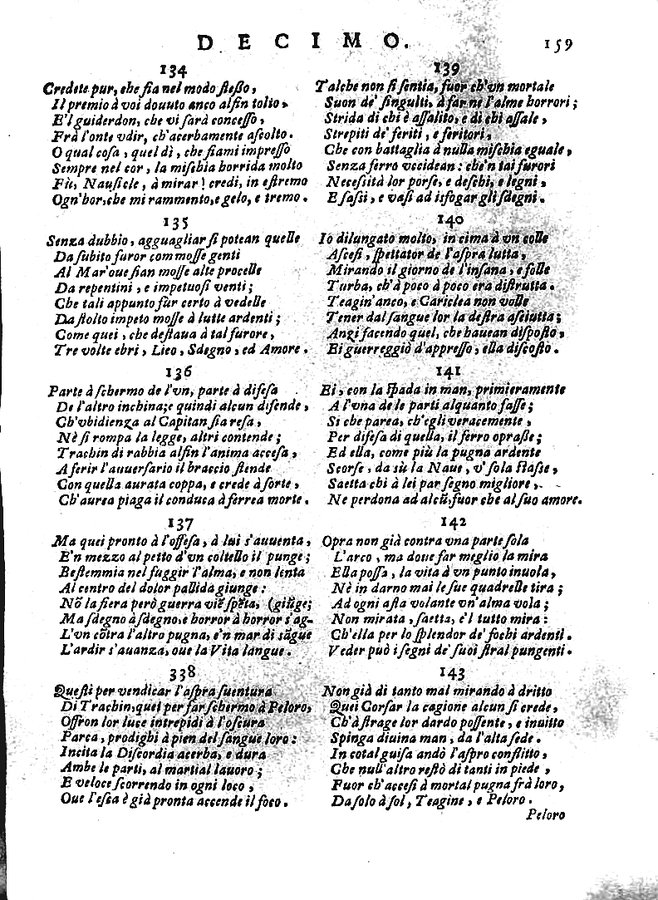 DECIMO. 159
134
Credete pur, che sia nel modo stesso,
Il premio à voi douuto anco alfin tolto,
E'l guiderdon, che vi sarà concesso,
Frà l'onte vdir, ch'acerbamente ascolto.
O qual cosa, quel dì, che siami impresso
Sempre nel cor, la mischia horrida molto
Fù, Nausicle, à mirar! credi, in estremo
Ogn'hor, che mi rammento, e gelo, e tremo.
135
Senza dubbio, agguagliar si potean quelle
Da subito furor commosse genti
Al Mar'oue sian mosse alte procelle
Da repentini, e impetuosi venti;
Che tali appunto fur certo à vedelle
Da stolto impeto mosse à lutte ardenti;
Come quei, che destaua à tal furore,
Tre volte ebri, Lieo, Sdegno, ed Amore.
136
Parte à schermo de l'vn, parte à difesa
De l'altro inchina; e quindi alcun difende,
Ch'vbidienza al Capitan sia resa,
Nè si rompa la legge, altri contende;
Trachin di rabbia alfin l'anima accesa,
A ferir l'auuersario il braccio stende
Con quella aurata coppa, e crede à sorte,
Ch'aurea piaga il conduca à ferrea morte.
137
Ma quei pronto à l'offesa, à lui s'auuenta,
E'n mezzo al petto d'vn coltello il punge;
Bestemmia nel fuggir l'alma, e non lenta
Al centro del dolor pallida giunge:
Nõ la fiera però guerra viẽ spẽta, (giũge;
Ma sdegno à sdegno, e horror à horror s'ag-
L'vn cõtra l'altro pugna, e'n mar di sãgue
L'ardir s'auanza, oue la Vita langue.
338
Questi per vendicar l'aspra suentura
Di Trachin, quei per far schermo à Peloro,
Offron lor luce intrepidi à l'oscura
Parca, prodighi à pien del sangue loro:
Incita la Discordia acerba, e dura
Ambe le parti, al martial lauoro;
E veloce scorrendo in ogni loco,
Oue l'esca è già pronta accende il foco.
139
Talche non si sentia, fuor ch'vn mortale
Suon de' singulti, à far ne l'alme horrori;
Strida di chi è assalito, e di chi assale,
Strepiti de' feriti, e feritori,
Che con battaglia à nulla mischia eguale,
Senza ferro vccidean: che'n tai furori
Necessità lor porse, e deschi, e legni,
E sassi, e vasi ad isfogar gli sdegni.
140
Io dilungato molto, in cima à vn colle
Ascesi, spettator de l'aspra lutta,
Mirando il giorno de l'insana, e folle
Turba, ch'à poco à poco era distrutta.
Teagin'anco, e Cariclea non volle
Tener dal sangue lor la destra asciutta;
Anzi facendo quel, che hauean disposto,
Ei guerreggiò d'appresso, ella discosto.
141
Ei, con la spada in man, primieramente
A l'vna de le parti alquanto fasse;
Si che parea, ch'egli veracemente,
Per difesa di quella, il ferro oprasse;
Ed ella, come più la pugna ardente
Scorse, da sù la Naue, v' sola stasse,
Saetta chi à lei par segno migliore,
Ne perdona ad alcũ, fuor che al suo amore.
142
Opra non già contra vna parte sola
L'arco, ma doue far meglio la mira
Ella possa, la vita à vn punto inuola,
Nè in darno mai le sue quadrelle tira;
Ad ogni asta volante vn'alma vola;
Non mirata, saetta, e'l tutto mira:
Ch'ella per lo splendor de' fochi ardenti.
Veder può i segni de' suoi stral pungenti.
143
Non già di tanto mal mirando à dritto
Quei Corsar la cagione alcun si crede,
Ch'à strage lor dardo possente, e inuitto
Spinga diuina man, da l'alta sede.
In cotal guisa andò l'aspro conflitto,
Che null'altro restò di tanti in piede,
Fuor ch'accesi à mortal pugna frà loro,
Da solo à sol, Teagine, e Peloro.
Peloro